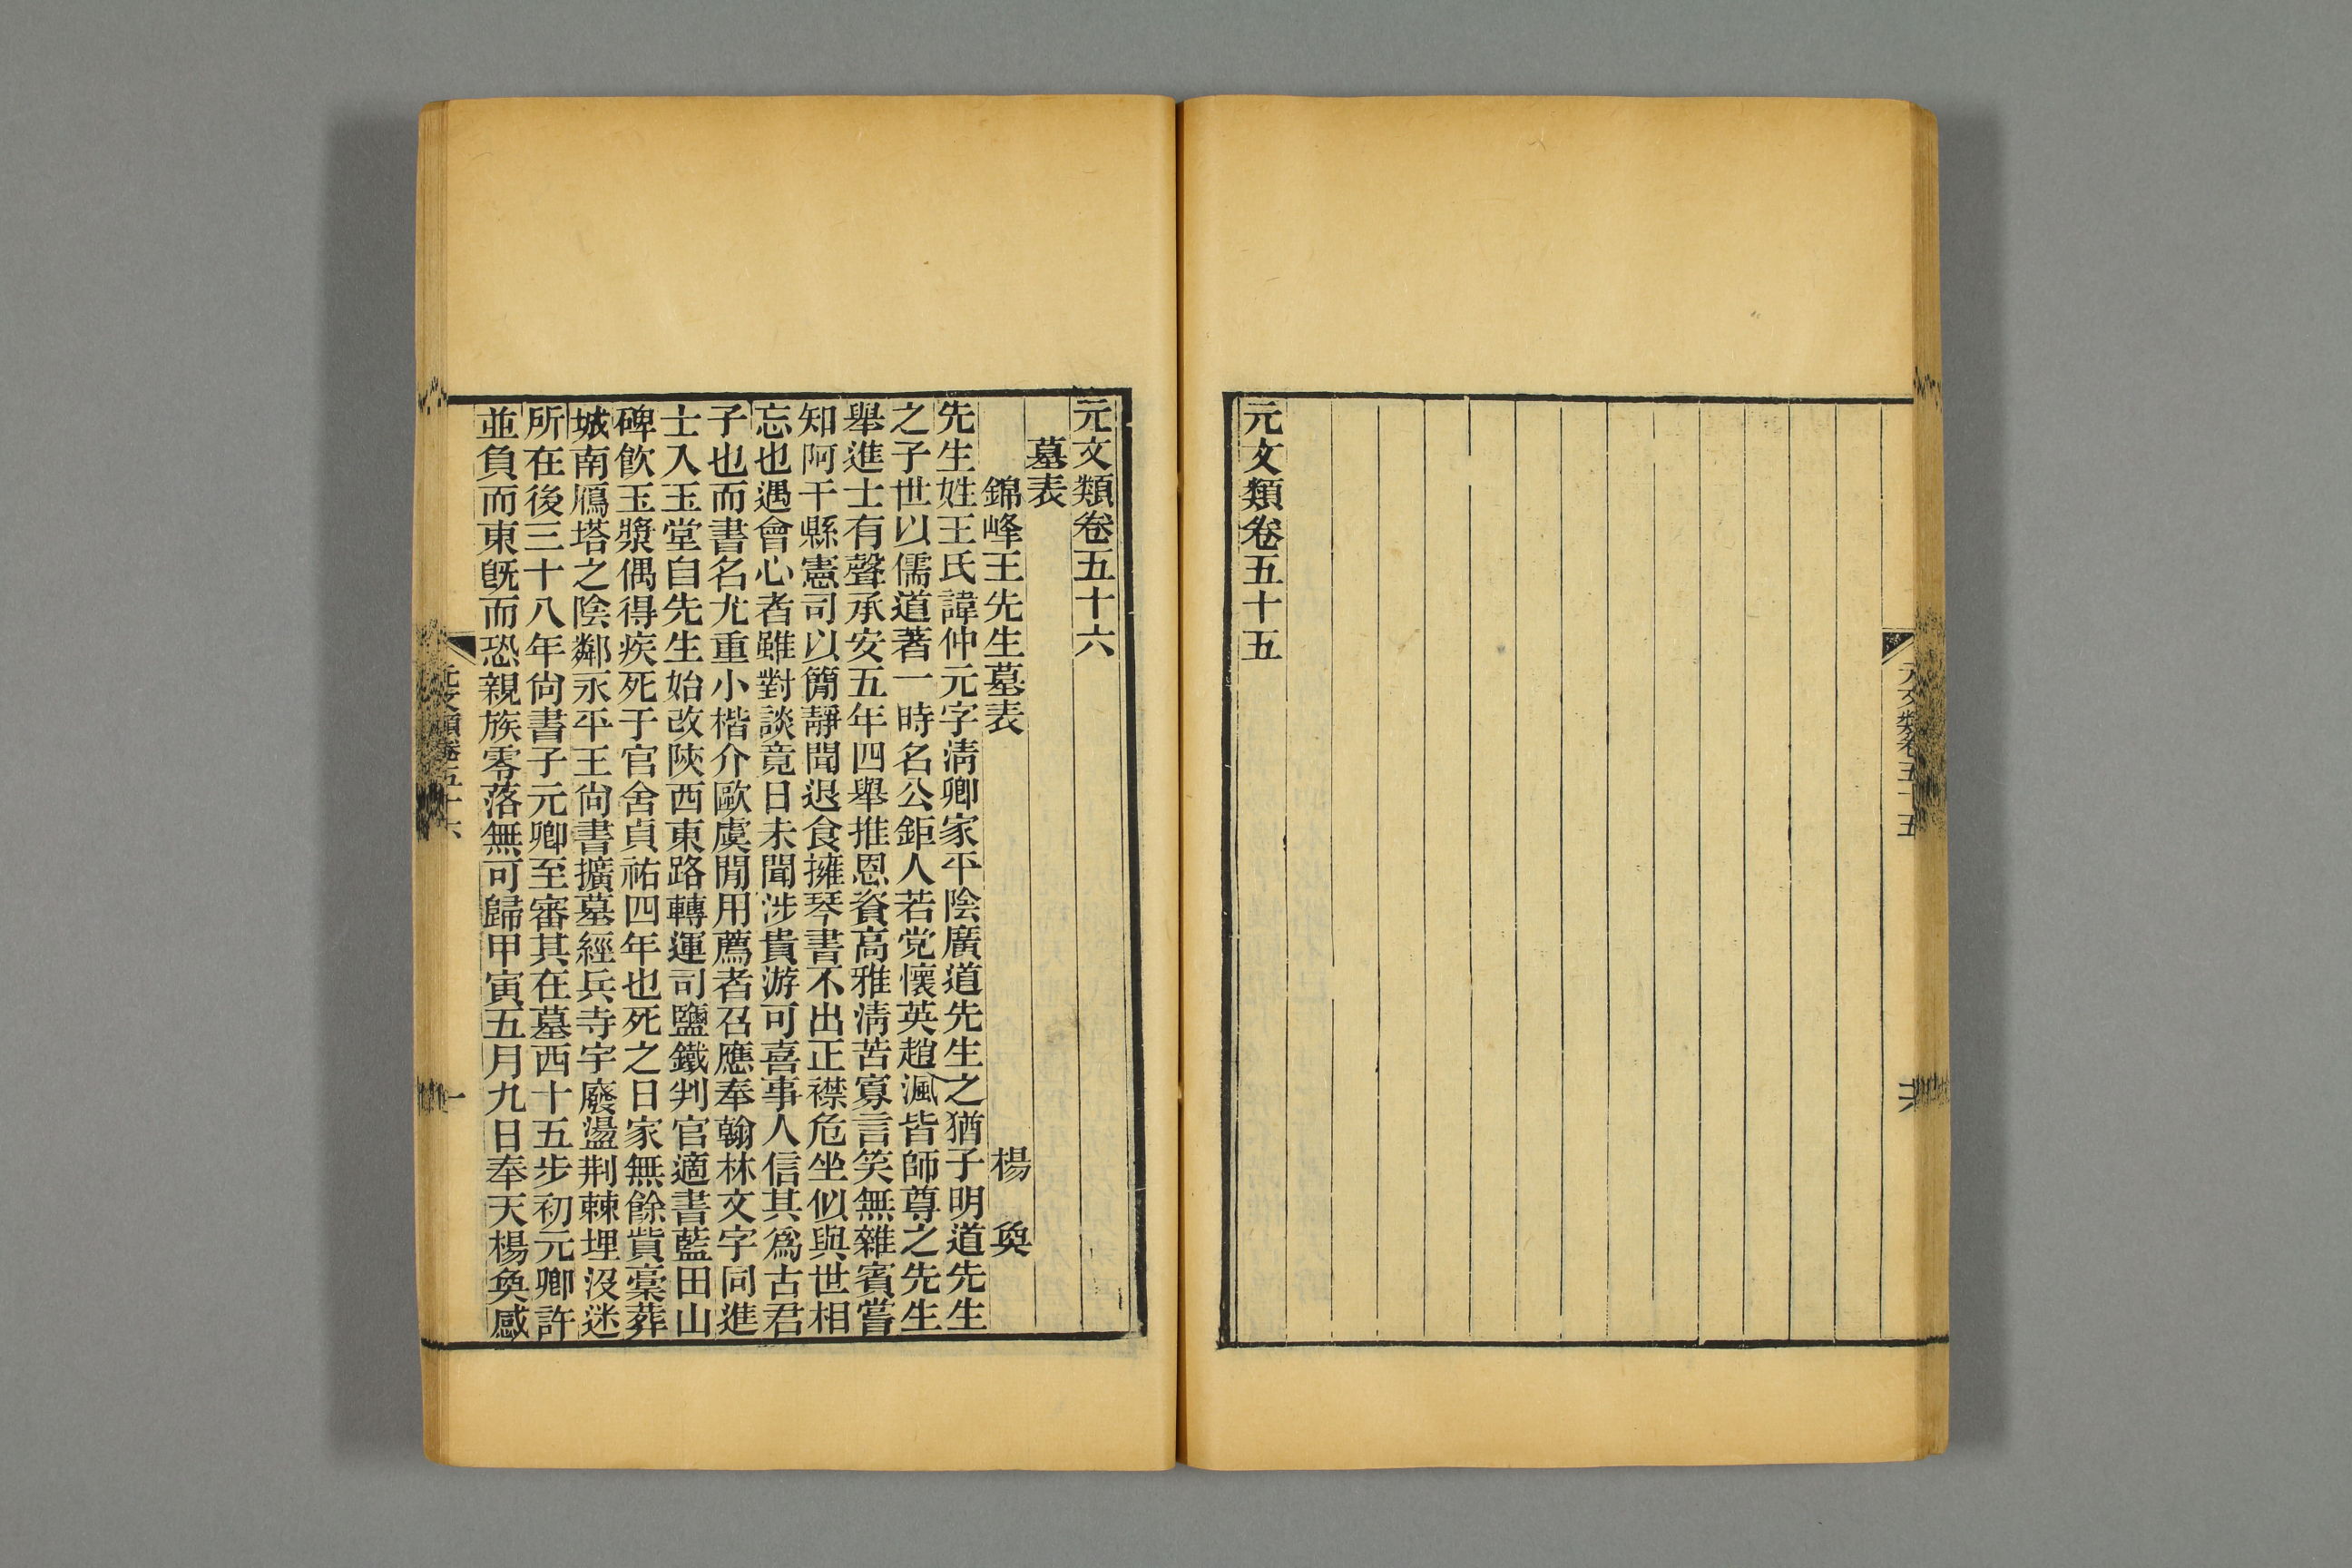 元文類卷五十五
元文類卷五十五
元文類卷五十六
墓表
錦峰王先生墓表
楊奐
先生姓王氏諱仲元字淸卿家平陰廣道先生之猶子明道先生
之子世以儒道著一時名公鉅人若党懷英趙渢皆師尊之先生
舉進士有聲承安五年四舉推恩資高雅淸苦寡言笑無雜賓嘗
知阿干縣憲司以簡靜聞退食擁琴書不出正襟危坐似與世相
忘也遇會心者雖對談竟日未聞涉貴游可喜事人信其爲古君
子也而書名尤重小楷介歐虞閒用薦者召應奉翰林文字同進
士入玉堂自先生始改陝西東路轉運司鹽鐵判官適書藍田山
碑飮玉漿偶得疾死于官舍貞祐四年也死之日家無餘貲藁葬
城南鴈塔之陰鄰永平王尙書擴墓經兵寺宇廢盪荆棘埋沒迷
所在後三十八年尙書子元卿至審其在墓西十五步初元卿許
並負而東旣而恐親族零落無可歸甲寅五月九日奉天楊奐感
元文類卷五十六
一